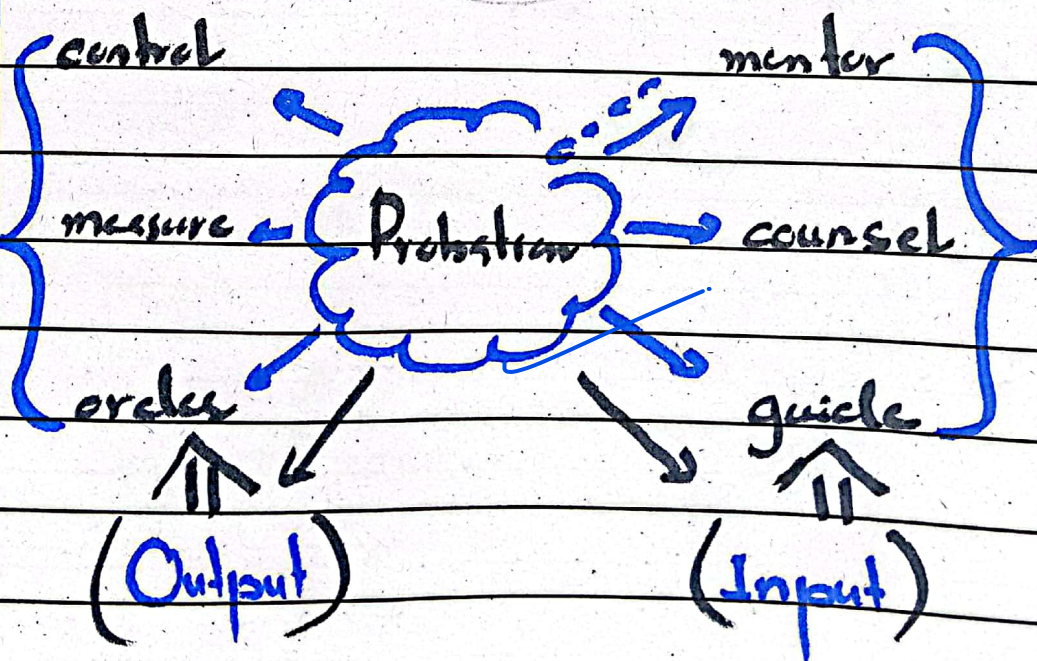 control mentor
measure Probation counsel
order guide
(Output) (Input)